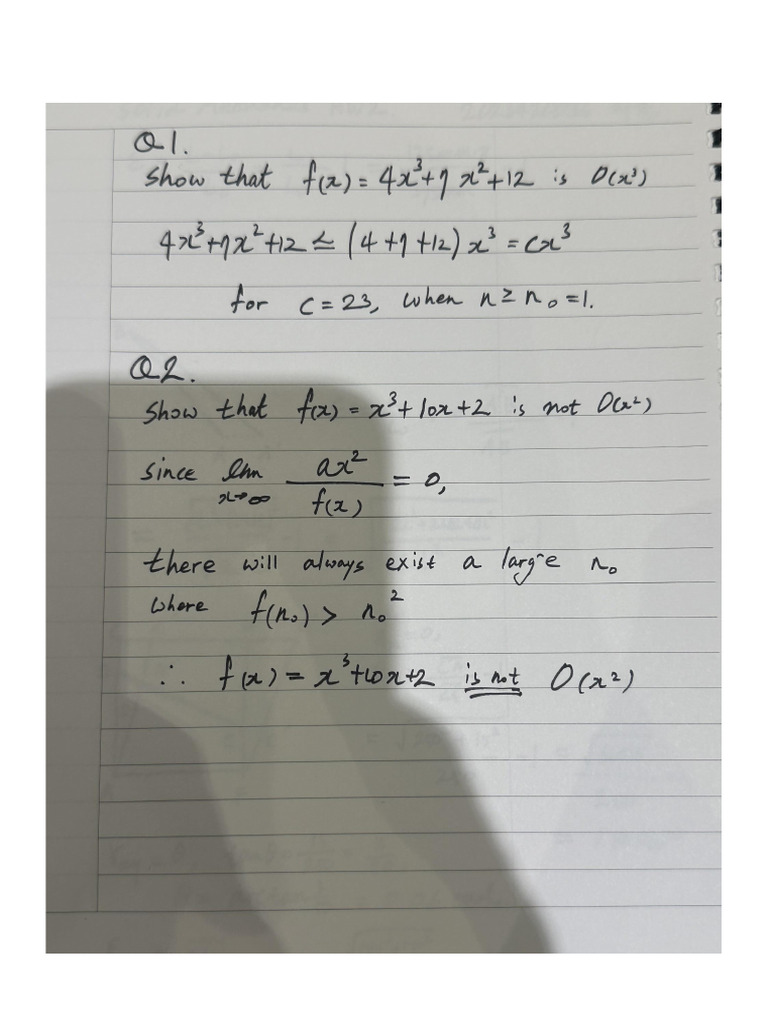 Q1.
Show that f(x) = 4x³+7x²+12 is O(x³)
4x³+7x²+12 ≤ (4+7+12)x³ = cx³
for c = 23, when n ≥ n₀ = 1.
Q2.
Show that f(x) = x³+10x+2 is not O(x²)
since lim x→∞ ax²/f(x) = 0,
there will always exist a large n₀
where f(n₀) > n₀²
∴ f(x) = x³+10x+2 is not O(x²)